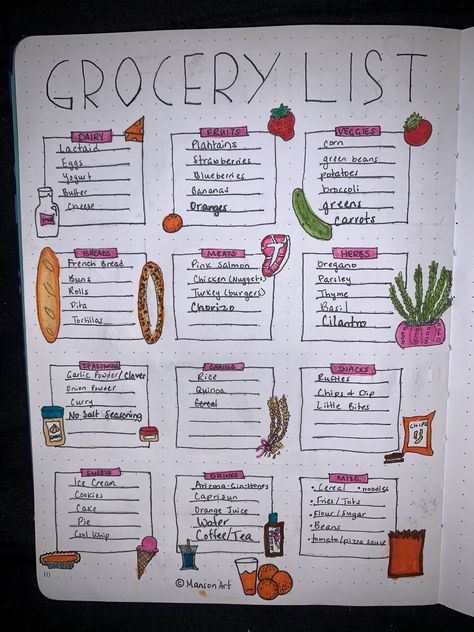 GROCERY LIST
DAIRY
Lactaid
Eggs
Yogurt
Butter
Cheese
FRUITS
Plahtains
Strawberries
Blueberries
Bananas
Oranges
VEGGIES
Corn
green beans
potatoes
broccoli
greens
carrots
BREADS
French Bread
Buns
Rolls
Pita
Tortillas
MEATS
Pink Salmon
Chicken (Nuggets)
Turkey (burgers)
Chorizo
HERBS
Oregano
Parsley
Thyme
Basil
Cilantro
SEASONING
Garlic Powder/Cloves
Onion Powder
Curry
No Salt Seasoning
GRAINS
Rice
Quinoa
Cereal
SNACKS
Ruffles
Chips & Dip
Little Bites
CHIPS
SWEETS
Ice Cream
Cookies
Cake
Pie
Cool Whip
DRINKS
Arizona-Gin-Honey
Caprisun
Orange Juice
Water
Coffee/Tea
MISC.
• Cereal • noodles
• Fries/Tots
• Flour/Sugar
• Beans
• tomato/pizza sauce
10
© Manson Art